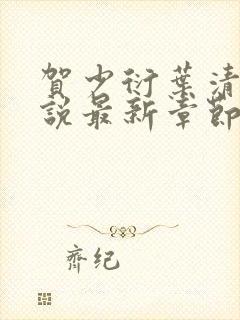 賀少衍葉清
說最新章節
齊紀